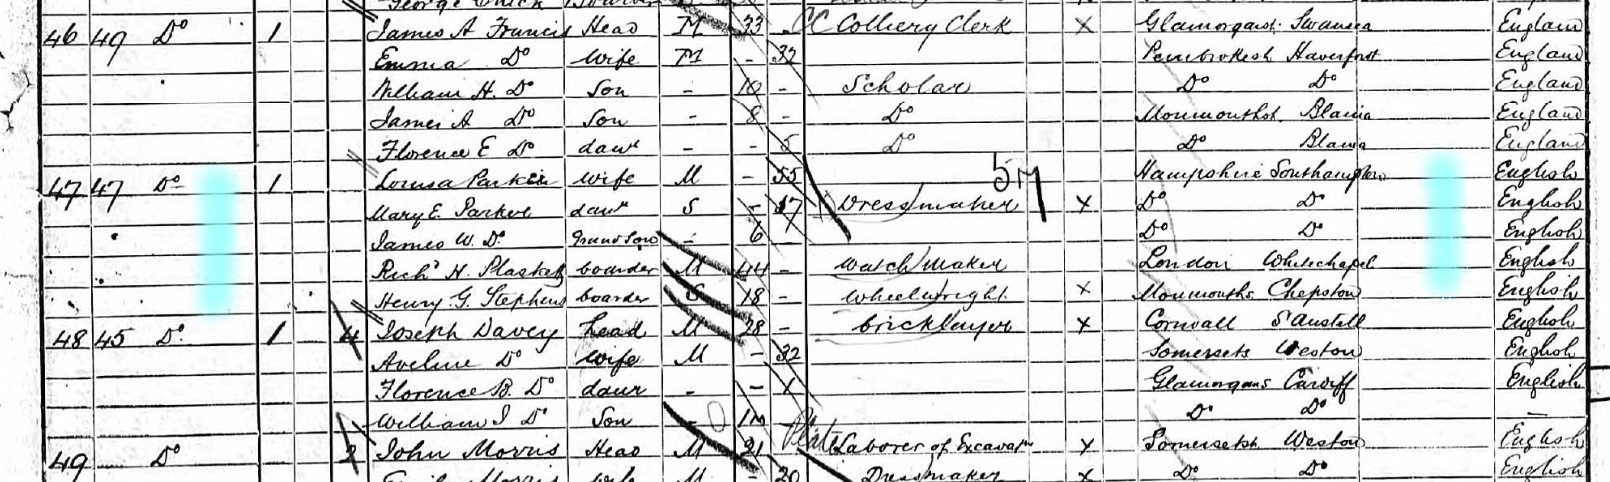 46 49 Do 1 James A Francis Head M 33 - CC Colliery Clerk X Glamorgans. Swansea England
Emma Do Wife M - 32 Pembrokesh Haverfort England
William H. Do Son - 10 - Scholar Do Do England
James A Do Son - 8 - Do Monmouthsh Blaina England
Florence E Do daur - - 5 Do Do Blaina England
47 47 Do 1 Louisa Parker wife M - 55 Hampshire Southampton English
5M
Mary E. Parker daur S - 17 Dressmaker X Do Do English
James W. Do Grandson - 6 Do Do English
Richd H. boarder M 44 - Watch Maker London Whitechapel English
Henry G. Stephens boarder S 18 - Wheelwright X Monmouths Chepstow English
48 45 Do 1 4 Joseph Davey head M 28 - bricklayer X Cornwall St Austell English
Aveline Do wife M - 32 Somersets Weston English
Florence B. Do daur - - 1 Glamorgans Cardiff English
William J Do Son - 1m Do Do -
49 Do 2 John Morris Head M 21 Laborer of Excavatr X Somersetsh Weston English
Morris wife M - 20 Dressmaker X Do Do English